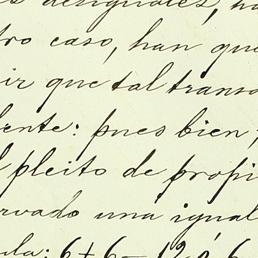 desiguales, ha
tro caso, han que
ir que tal trans
ente: pues bien,
l pleito de propi
rvado una igual
ula: 6+6=12 ó 6